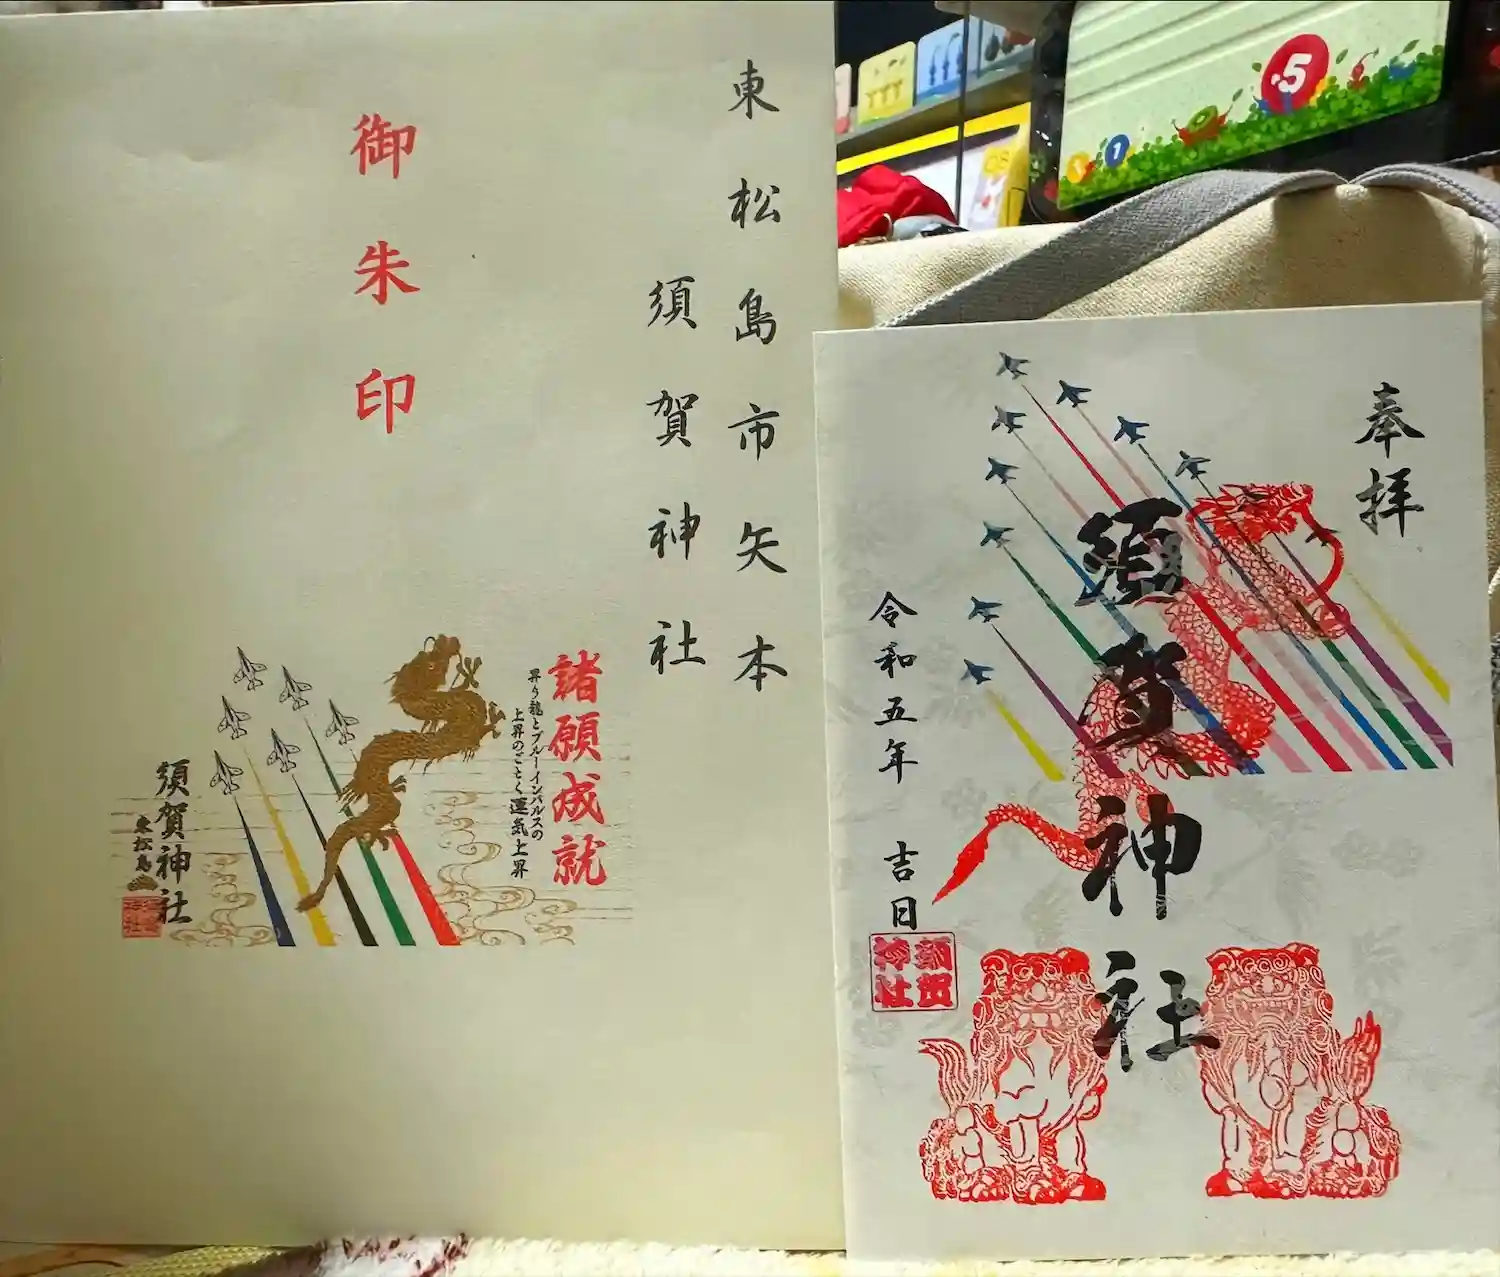 東松島市矢本
須賀神社
御朱印
諸願成就
昇り龍とブルーインパルスの
上昇のごとく運気上昇
須賀神社
東松島
須賀
神社
奉拝
須賀神社
令和五年 吉日
須賀
神社
5
1